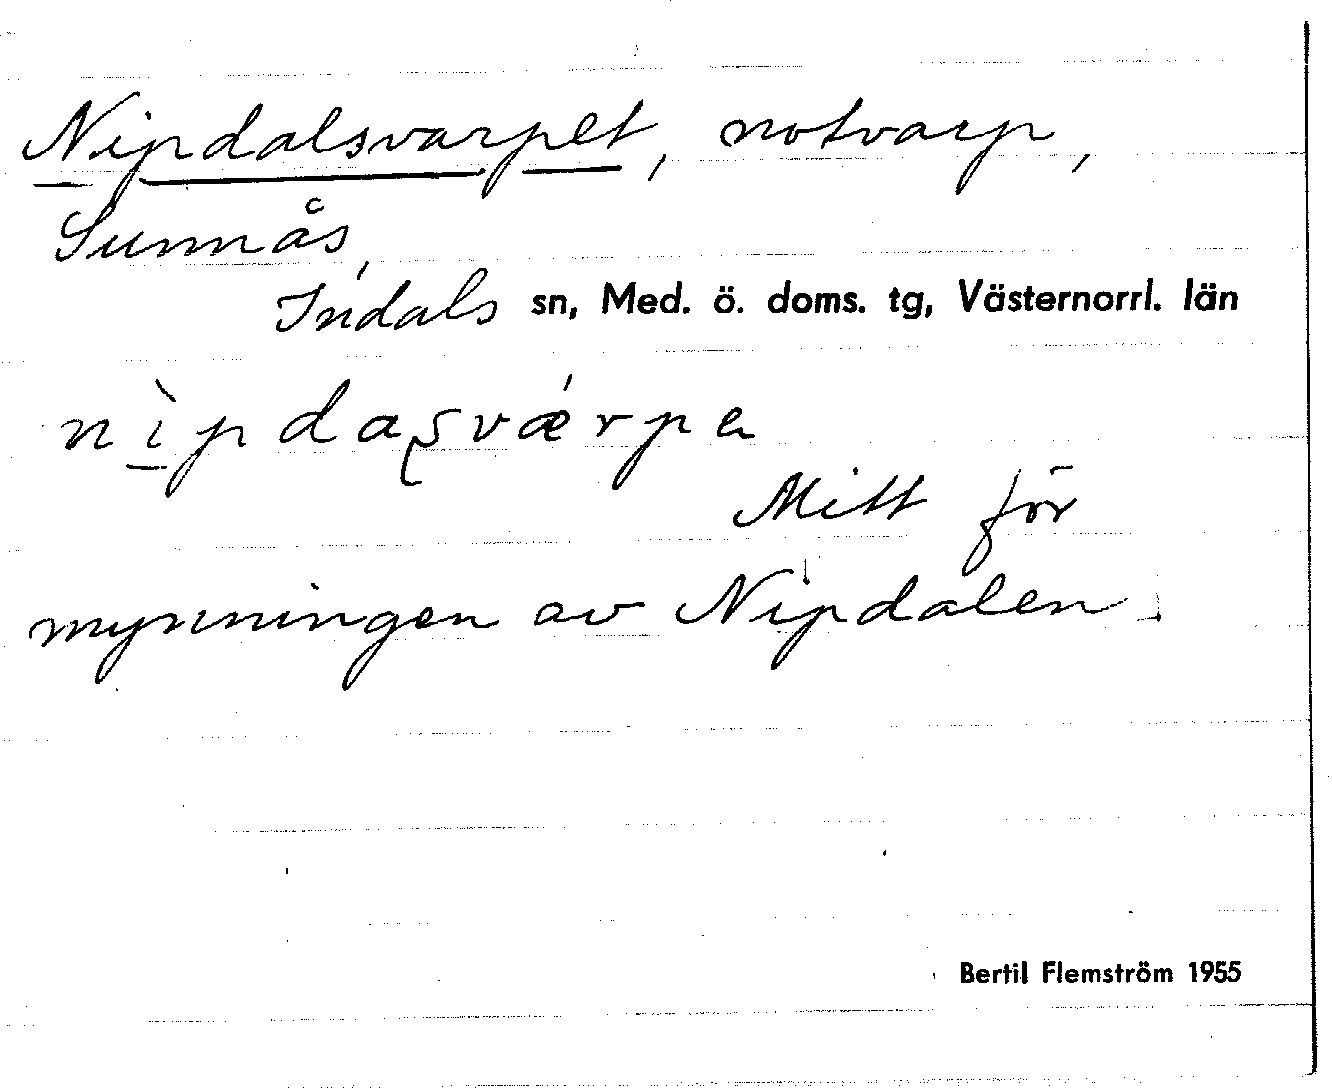 Nipdalsvarpet, notvarp,
Sunnås,
Indals sn, Med. ö. doms. tg, Västernorrl. län
nìpdaʂvǽrpa
Mitt för
mynningen av Nipdalen.
Bertil Flemström 1955